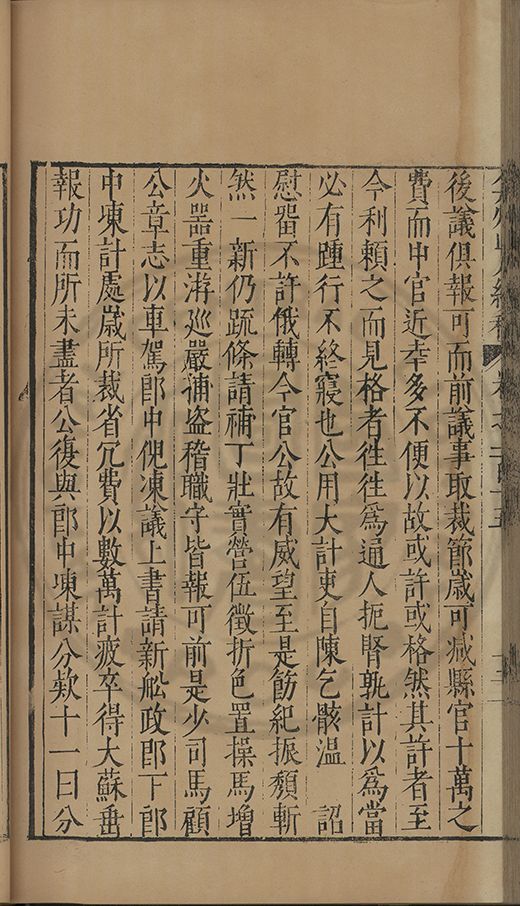 後議俱報可而前議事取裁節歲可减縣官十萬之
費而中官近幸多不便以故或許或格然其許者至
今利賴之而見格者徃徃爲通人扼腎孰計以爲當
必有踵行不終寢也公用大計吏自陳乞骸溫　詔
慰畱不許俄轉今官公故有威望至是飭紀振頽斬
然一新仍䟽條請補丁壯實營伍徵折色置操馬增
火器重游巡嚴補盗稽職守皆報可前是少司馬顧
公章志以車駕郎中倪凍議上書請新船政郎下郎
中凍計處歲所裁省冗費以數萬計疲卒得大蘇畨
報功而所未盡者公復與郎中凍謀分欵十一曰分